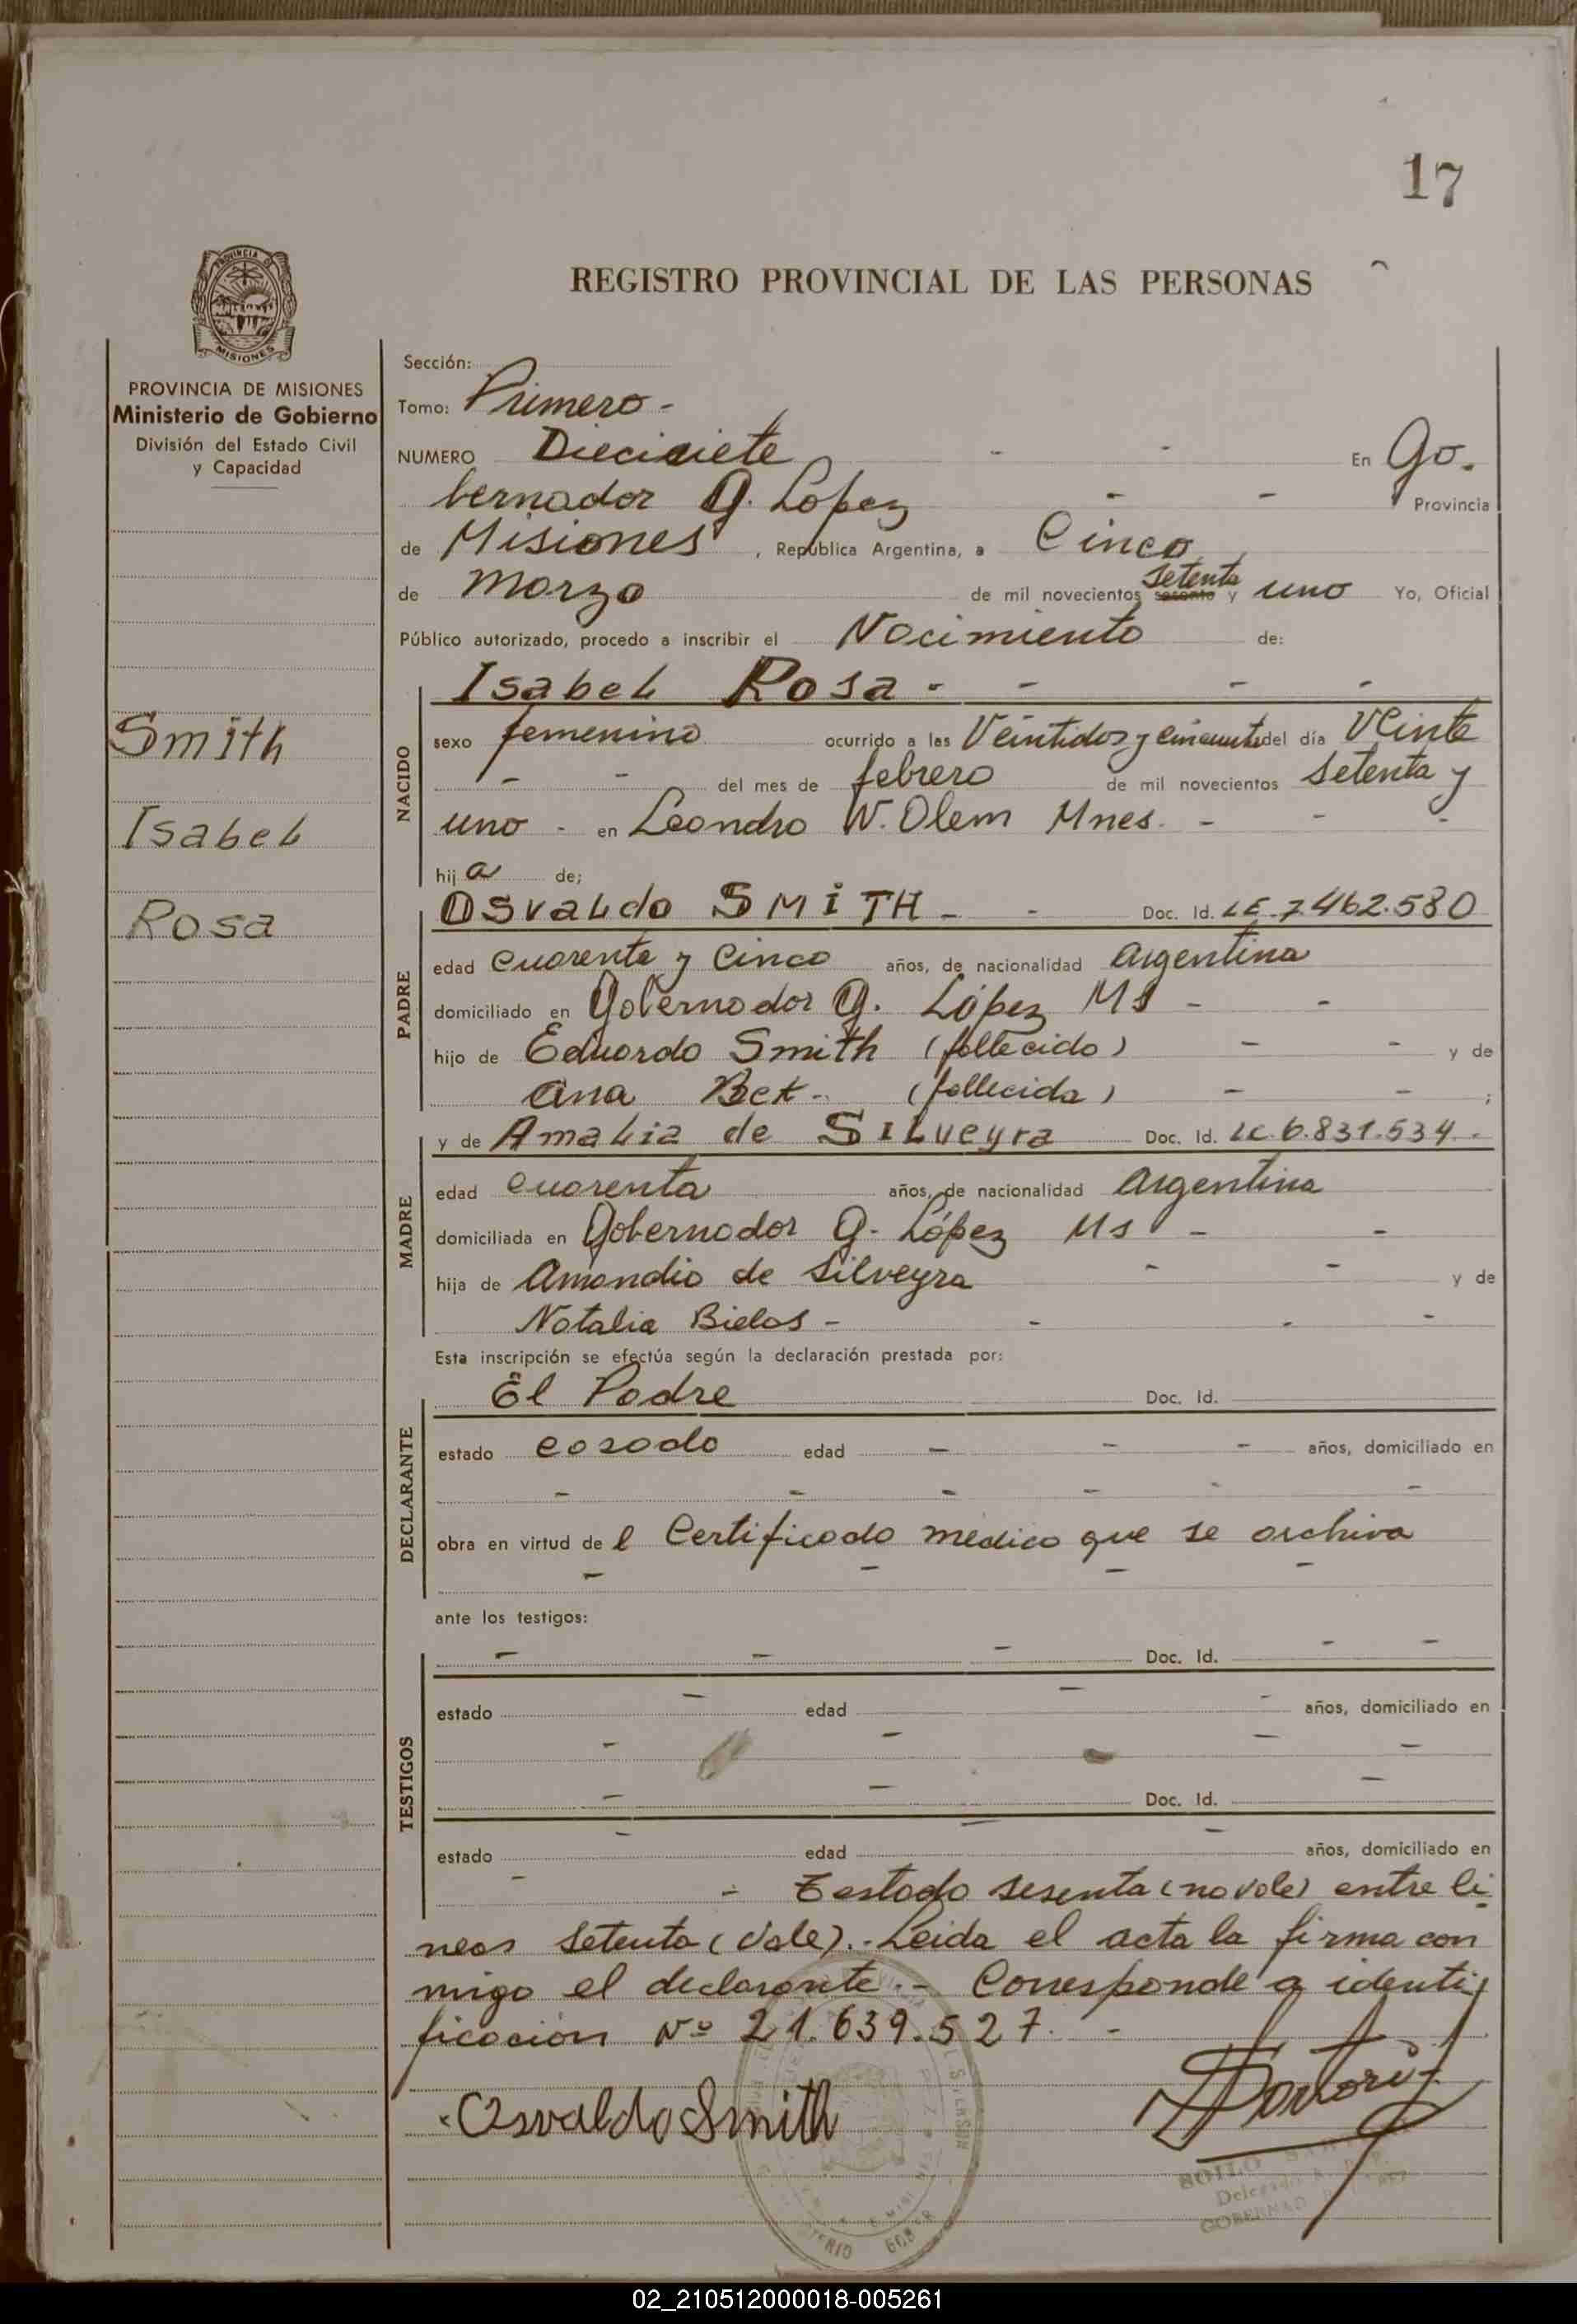 17
PROVINCIA DE
MISIONES
REGISTRO PROVINCIAL DE LAS PERSONAS
PROVINCIA DE MISIONES
Ministerio de Gobierno
División del Estado Civil
y Capacidad
Smith
Isabel
Rosa
Sección:
Tomo: Primero -
NUMERO Diecisiete - - En Go.
bernador G. López - - Provincia
de Misiones, República Argentina, a Cinco
de Marzo de mil novecientos setenta sesenta y uno Yo, Oficial
Público autorizado, procedo a inscribir el Nacimiento de:
NACIDO
Isabel Rosa - - - -
sexo femenino ocurrido a las Veintidos y cincuenta del día Veinte
- - del mes de febrero de mil novecientos setenta y
uno - en Leandro N. Alem Mnes. - - -
hija de;
PADRE
Osvaldo SMiTH - - Doc. Id. LE 7.462.580
edad cuarenta y cinco años, de nacionalidad Argentina
domiciliado en Gobernador G. López Ms - -
hijo de Eduardo Smith (fallecido) - - y de
Ana Bet - (fallecida) - - ;
MADRE
y de Amalia de SILveyra Doc. Id. LC. 6.831.534 -
edad cuarenta años, de nacionalidad Argentina
domiciliada en Gobernador G. López Ms - -
hija de Amandio de Silveyra - - y de
Natalia Bielas - - - -
Esta inscripción se efectúa según la declaración prestada por:
DECLARANTE
El Padre Doc. Id.
estado casado edad - - - años, domiciliado en
- - - - - -
obra en virtud del Certificado médico que se archiva
- - - -
ante los testigos:
TESTIGOS
- - - Doc. Id. - -
estado - edad - - años, domiciliado en
- - - -
- - Doc. Id. -
estado - edad - - años, domiciliado en
- - Testado sesenta (no vale) entre lí
neas setenta (vale). - Leida el acta la firma con
migo el declarante. - Corresponde a identi
ficación Nº 21.639.527. -
Osvaldo Smith
02_210512000018-005261